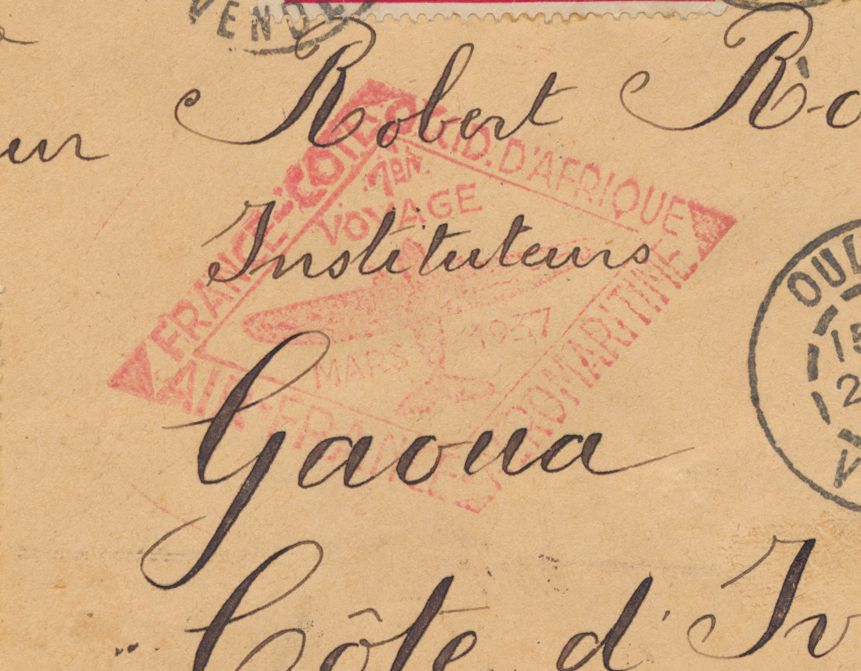 VENDÉE
Robert
Instituteurs
Gaoua
Côte d'Iv
FRANCE-COTE OCCID. D'AFRIQUE
1er VOYAGE
MARS 1937
AIR-FRANCE AEROMARITIME
OUL
15
2
V